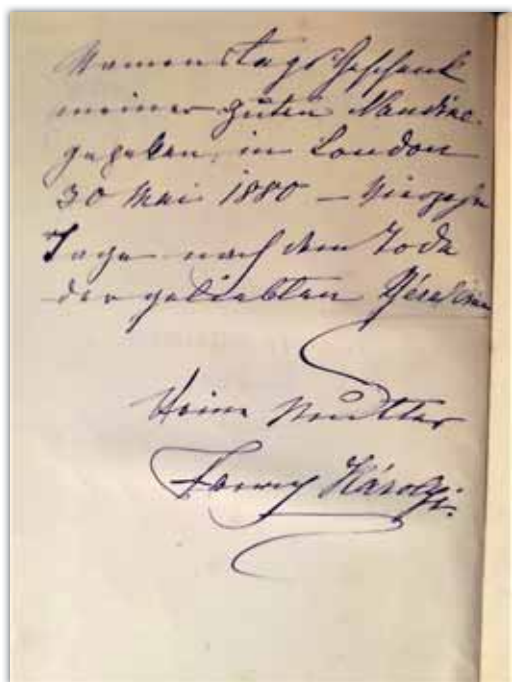 Namenstags Geschenk
meiner guten Nandine
gegeben in London
30 Mai 1880 – Vierzehn
Tage nach dem Tode
der geliebten
Deine Mutter
Fanny Károlyi.